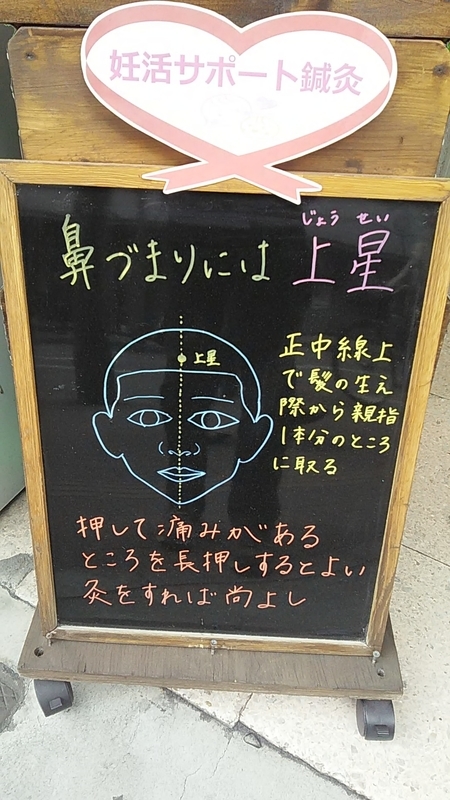 妊活サポート鍼灸
じょう せい
鼻づまりには 上星
上星
正中線上
で髪の生え
際から親指
1本分のところ
に取る
押して痛みがある
ところを長押しするとよい
灸をすれば尚よし